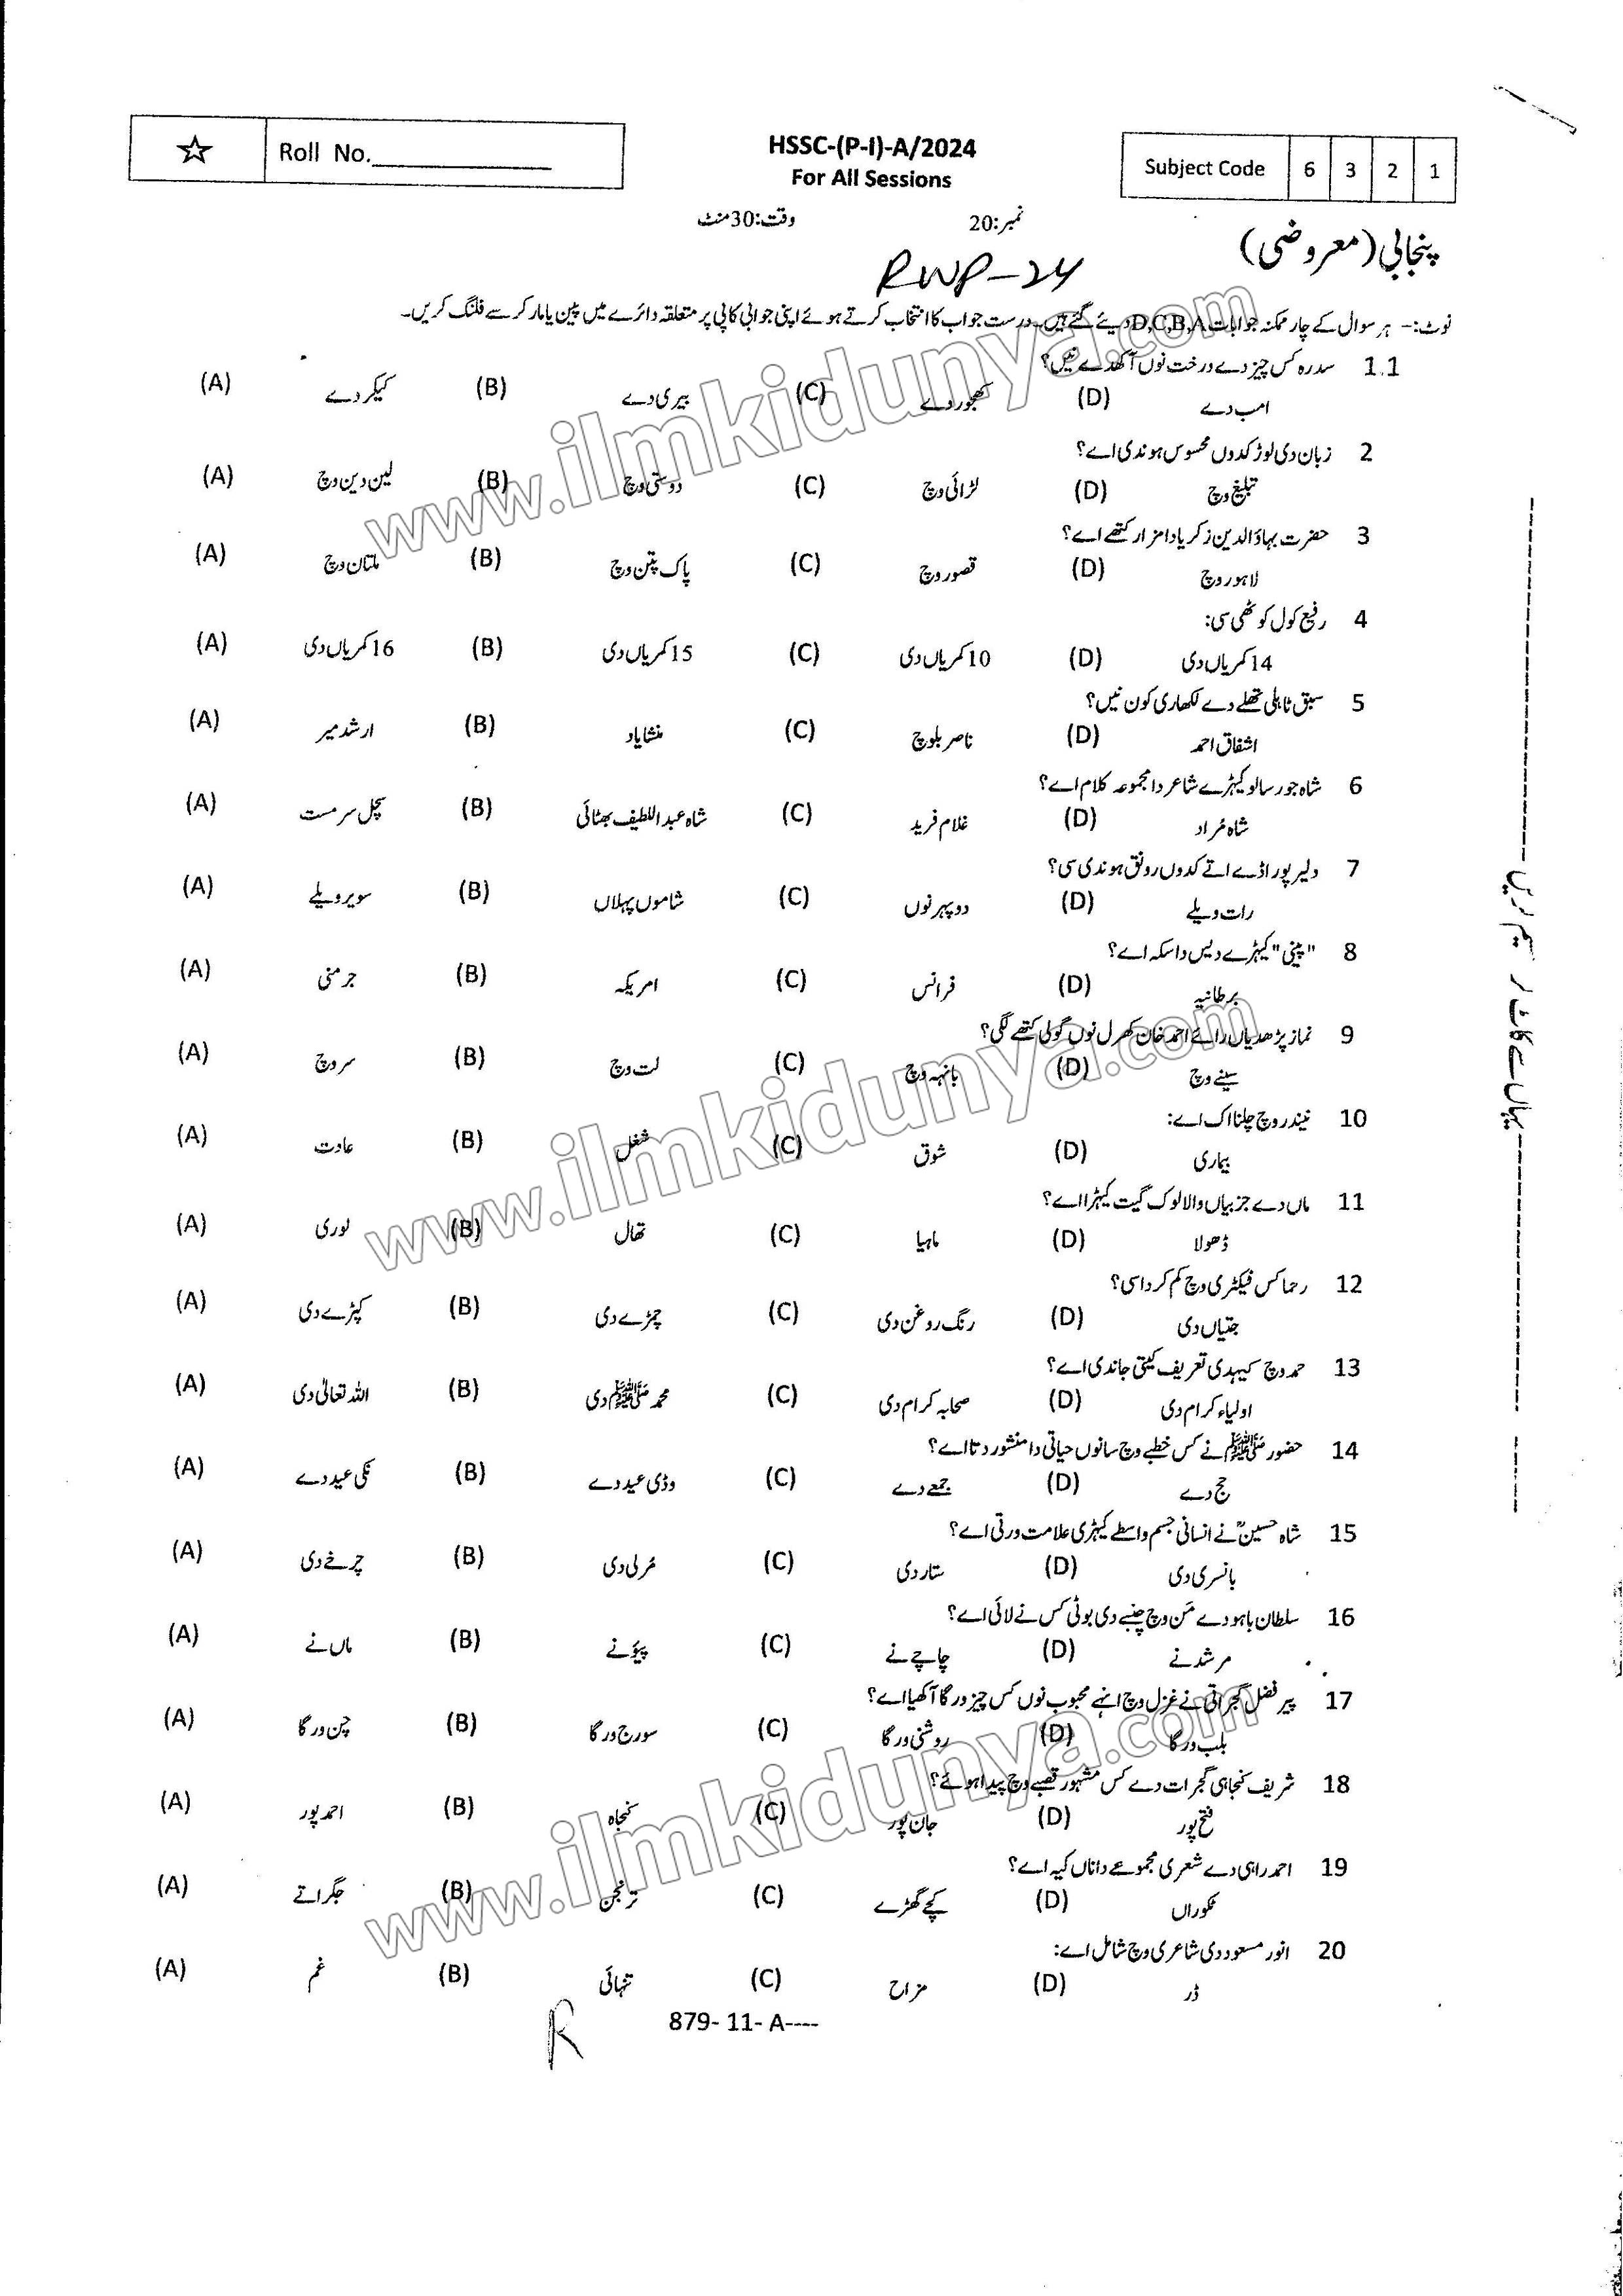 ☆ Roll No.____________
HSSC-(P-I)-A/2024
For All Sessions
Subject Code 6 3 2 1
پنجابی (معروضی)
نمبر:20 وقت:30منٹ
RWP-24
نوٹ:- ہر سوال کے چار ممکنہ جوابات D,C,B,A دیئے گئے ہیں۔ درست جواب کا انتخاب کرتے ہوئے اپنی جوابی کاپی پر متعلقہ دائرے میں پین یا مارکر سے فلنگ کریں۔
1.1 سدرہ کس چیز دے درخت نوں آکھدے نیں؟
(A) کیکر دے (B) بیری دے (C) کھجور دے (D) امب دے
2 زبان دی لوڑ کدوں محسوس ہوندی اے؟
(A) لین دین وچ (B) دوستی وچ (C) لڑائی وچ (D) تبلیغ وچ
3 حضرت بہاؤالدین زکریا دا مزار کتھے اے؟
(A) ملتان وچ (B) پاک پتن وچ (C) قصور وچ (D) لاہور وچ
4 رفیع کول کوٹھی سی:
(A) 16 کمریاں دی (B) 15 کمریاں دی (C) 10 کمریاں دی (D) 14 کمریاں دی
5 سبق ٹاہلی تھلے دے لکھاری کون نیں؟
(A) ارشد میر (B) منشا یاد (C) ناصر بلوچ (D) اشفاق احمد
6 شاہ جو رسالو کیہڑے شاعر دا مجموعہ کلام اے؟
(A) سچل سرمست (B) شاہ عبد اللطیف بھٹائی (C) غلام فرید (D) شاہ مُراد
7 دلیر پور اڈے اتے کدوں رونق ہوندی سی؟
(A) سویر ویلے (B) شاموں پہلاں (C) دوپہر نوں (D) رات ویلے
8 "پینی" کیہڑے دیس دا سکہ اے؟
(A) جرمنی (B) امریکہ (C) فرانس (D) برطانیہ
9 نماز پڑھدیاں رائے احمد خان کھرل نوں گولی کتھے لگی؟
(A) سر وچ (B) لت وچ (C) بانہہ وچ (D) سینے وچ
10 نیندر وچ چلنا اک اے:
(A) عادت (B) شغل (C) شوق (D) بیماری
11 ماں دے جزبیاں والا لوک گیت کیہڑا اے؟
(A) لوری (B) تھال (C) ماہیا (D) ڈھولا
12 رحما کس فیکٹری وچ کم کردا سی؟
(A) کپڑے دی (B) چمڑے دی (C) رنگ روغن دی (D) جتیاں دی
13 حمد وچ کیہدی تعریف کیتی جاندی اے؟
(A) اللہ تعالیٰ دی (B) محمد ﷺ دی (C) صحابہ کرام دی (D) اولیاء کرام دی
14 حضور ﷺ نے کس خطبے وچ سانوں حیاتی دا منشور دتا اے؟
(A) نکی عید دے (B) وڈی عید دے (C) جمعے دے (D) حج دے
15 شاہ حسینؒ نے انسانی جسم واسطے کیہڑی علامت ورتی اے؟
(A) چرخے دی (B) مُرلی دی (C) ستار دی (D) بانسری دی
16 سلطان باہو دے مَن وچ چنبے دی بوٹی کس نے لائی اے؟
(A) ماں نے (B) پیؤ نے (C) چاچے نے (D) مرشد نے
17 پیر فضل گجراتی نے غزل وچ اپنے محبوب نوں کس چیز ورگا آکھیا اے؟
(A) چن ورگا (B) سورج ورگا (C) روشنی ورگا (D) بلب ورگا
18 شریف کنجاہی گجرات دے کس مشہور قصبے وچ پیدا ہوئے؟
(A) احمد پور (B) کنجاہ (C) جان پور (D) فتح پور
19 احمد راہی دے شعری مجموعے دا ناں کیہ اے؟
(A) جگراتے (B) ترنجن (C) کچے گھڑے (D) ٹکوراں
20 انور مسعود دی شاعری وچ شامل اے:
(A) غم (B) تنہائی (C) مزاح (D) ڈر
879- 11- A----
R
www.ilmkidunya.com
www.ilmkidunya.com
www.ilmkidunya.com